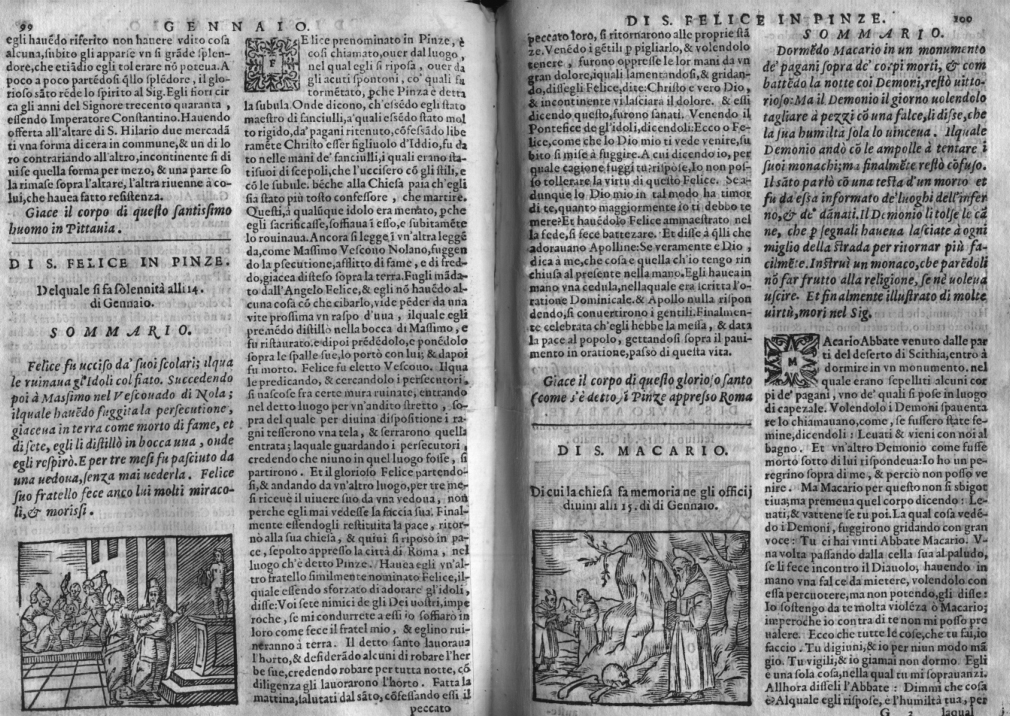 99 GENNAIO.
egli hauẽdo riferito non hauere vdito cosa
alcuna, subito gli apparse vn sì grãde splen-
dore, che etiãdio egli tolerare nõ potea. A
poco a poco partẽdosi q̃llo splẽdore, il glo-
rioso sãto rẽde lo spirito al Sig. Egli fiorì cir
ca gli anni del Signore trecento quaranta,
essendo Imperatore Constantino. Hauendo
offerta all'altare di S. Hilario due mercadã
ti vna forma di cera in commune, & un di lo
ro contrariando all'altro, incontinente si di
uise quella forma per mezo, & una parte so
la rimase sopra l'altare, l'altra riuenne à co-
lui, che hauea fatto resistenza.
Giace il corpo di questo santissimo
huomo in Pittauia.
DI S. FELICE IN PINZE.
Delquale si fa solennità alli 14.
di Gennaio.
SOMMARIO.
Felice fu ucciso da' suoi scolari; ilqua
le ruinaua gl'Idoli col fiato. Succedendo
poi à Massimo nel Vescouado di Nola;
ilquale hauẽdo fuggita la persecutione,
giaceua in terra come morto di fame, et
di sete, egli li distillò in bocca uua, onde
egli respirò. E per tre mesi fu pasciuto da
una uedoua, senza mai uederla. Felice
suo fratello fece anco lui molti miraco-
li, & morissi.
FElice prenominato in Pinze, è
così chiamato, ouer dal luogo,
nel qual egli si riposa, ouer da
gli acuti spontoni, co' quali fu
tormẽtato, pche Pinza è detta
la subula. Onde dicono, ch'essẽdo egli stato
maestro di fanciulli, a'quali essẽdo stato mol
to rigido, da' pagani ritenuto, cõfessãdo libe
ramẽte Christo esser figliuolo d'Iddio, fu da
to nelle mani de' fanciulli, i quali erano sta-
ti suoi di scepoli, che l'uccisero cõ gli stili, e
cõ le subule. bẽche alla Chiesa paia ch'egli
sia stato più tosto confessore, che martire.
Questi, à qualũque idolo era menato, pche
egli sacrificasse, soffiaua ì esso, e subitamẽte
lo rouinaua. Ancora si legge ì vn'altra leggẽ
da, come Massimo Vescouo Nolano, fuggen
do la psecutione, afflitto di fame, e di fred-
do, giacea disteso sopra la terra. Fugli mãda-
to dall'Angelo Felice, & egli nõ hauẽdo al-
cuna cosa cõ che cibarlo, vide pẽder da una
vite prossima vn raspo d'uua, ilquale egli
premẽdo distillò nella bocca di Massimo, e
fu ristaurato. e dipoi prẽdẽdolo, e ponẽdolo
sopra le spalle sue, lo portò con lui; & dapoi
fu morto. Felice fu eletto Vescouo. Ilqua
le predicando, & cercandolo i persecutori,
si nascose fra certe mura ruinate, entrando
nel detto luogo per vn'andito stretto, so-
pra del quale per diuina dispositione i ra-
gni tesserono vna tela, & serrarono quella
entrata; laquale guardando i persecutori,
credendo che niuno in quel luogo fosse, si
partirono. Et il glorioso Felice partendo-
si, & andando da vn'altro luogo, per tre me-
si riceuè il uiuere suo da vna vedoua, non
perche egli mai vedesse la faccia sua. Final-
mente essendogli restituita la pace, ritor-
nò alla sua chiesa, & quiui si riposò in pa-
ce, sepolto appresso la città di Roma, nel
luogo ch'è detto Pinze. Hauea egli vn'al-
tro fratello similmente nominato Felice, il-
quale essendo sforzato di adorare gl'idoli,
disse: Voi sete nimici de gli Dei uostri, impe
roche, se mi condurrete a essi io soffiarò in
loro come fece il fratel mio, & eglino rui-
neranno à terra. Il detto santo lauoraua
l'horto, & desiderãdo alcuni di robare l'her
be sue, credendo robare per tutta notte, cõ
diligenza gli lauorarono l'horto. Fatta la
mattina, salutati dal sãto, cõfessando essi il
peccato
DI S. FELICE IN PINZE. 100
peccato loro, si ritornarono alle proprie stã
ze. Venẽdo i gẽtili p pigliarlo, & volendolo
tenere, furono oppresse le lor mani da vn
gran dolore, iquali lamentandosi, & gridan-
do, disse gli Felice, dite: Christo è vero Dio,
& incontinente vi lasciarà il dolore. & essi
dicendo questo, furono sanati. Venendo il
Pontefice de gl'idoli, dicendoli: Ecco o Fe-
lice, come che lo Dio mio ti vede venire, su
bito si mise à fuggire. A cui dicendo io, per
quale cagione, fuggi tu? rispose, Io non pos-
so tollerare la virtù di questo Felice. Se a-
dunque lo Dio mio in tal modo ha timor
di te, quanto maggiormente io ti debbo te
mere? Et hauẽdolo Felice ammaestrato nel
la fede, si fece battezare. Et disse à q̃lli che
adorauano Apolline: Se veramente è Dio,
dica à me, che cosa è quella ch'io tengo rin
chiusa al presente nella mano. Egli hauea in
mano vna cedula, nellaquale era iscritta l'o-
ratione Dominicale. & Apollo nulla rispon
dendo, si conuertirono i gentili. Finalmen-
te celebrata ch'egli hebbe la messa, & data
la pace al popolo, gettandosi sopra il paui-
mento in oratione, passò di questa vita.
Giace il corpo di questo glorioso santo
(come s'è detto) ì Pinze appresso Roma
DI S. MACARIO.
Di cui la chiesa fa memoria ne gli officij
diuini alli 15. di di Gennaio.
SOMMARIO.
Dormẽdo Macario in un monumento
de' pagani sopra de' corpi morti, & com
battẽdo la notte coi Demoni, restò uitto-
rioso: Ma il Demonio il giorno uolendolo
tagliare à pezzi cõ una falce, li disse, che
la sua humiltà sola lo uinceua. Ilquale
Demonio andò cõ le ampolle à tentare i
suoi monachi; ma finalmẽte restò cõfuso.
Il sãto parlò cõ una testa d'un morto et
fu da essa informato de' luoghi dell'infer
no, & de' dãnati. Il Demonio li tolse le cã
ne, che p segnali haueua lasciate à ogni
miglio della strada per ritornar più fa-
cilmẽte. Instruì un monaco, che parẽdoli
nõ far frutto alla religione, se ne uoleua
uscire. Et finalmente illustrato di molte
uirtù, morì nel Sig.
MAcario Abbate venuto dalle par
ti del deserto di Scithia, entrò à
dormire in vn monumento, nel
quale erano sepelliti alcuni cor
pi de' pagani, vno de' quali si pose in luogo
di capezale. Volendolo i Demoni spauenta
re lo chiamauano, come, se fussero state fe-
mine, dicendoli: Leuati & vieni con noi al
bagno. Et vn'altro Demonio come fusse
morto sotto di lui rispondeua: Io ho un pe-
regrino sopra di me, & perciò non posso ve
nire. Ma Macario per questo non si sbigot
tiua; ma premeua quel corpo dicendo: Le-
uati, & vattene se tu poi. La qual cosa vedẽ-
do i Demoni, fuggirono gridando con gran
voce: Tu ci hai vinti Abbate Macario. V-
na volta passando dalla cella sua al paludo,
se li fece incontro il Diauolo, hauendo in
mano vna falce da mietere, volendolo con
essa percuotere, ma non potendo, gli disse:
Io sostengo da te molta violẽza ò Macario;
imperoche io contra di te non mi posso pre
ualere. Ecco che tutte le cose, che tu fai, io
faccio. Tu digiuni, & io per niun modo mã
gio. Tu vigili, & io giamai non dormo. Egli
è una sola cosa, nella qual tu mi soprauanzi.
Allhora disseli l'Abbate: Dimmi che cosa
è? Alquale egli rispose, è l'humiltà tua, per
G 2 laqual